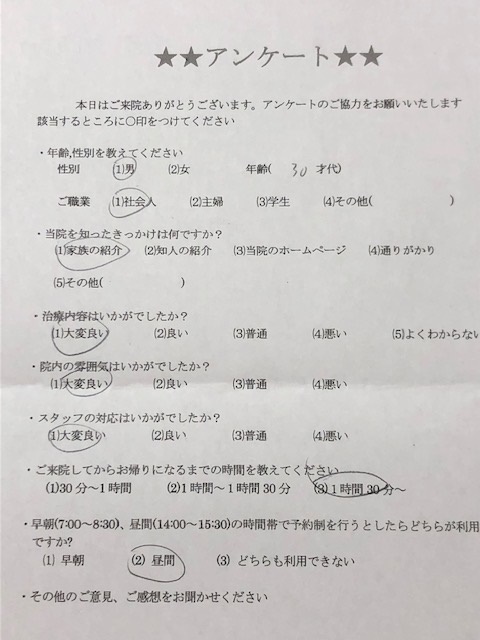 ★★アンケート★★
本日はご来院ありがとうございます。アンケートのご協力をお願いいたします
該当するところに○印をつけてください
・年齢,性別を教えてください
性別 (1)男 (2)女 年齢( 30 才代)
ご職業 (1)社会人 (2)主婦 (3)学生 (4)その他( )
・当院を知ったきっかけは何ですか?
(1)家族の紹介 (2)知人の紹介 (3)当院のホームページ (4)通りがかり
(5)その他( )
・治療内容はいかがでしたか?
(1)大変良い (2)良い (3)普通 (4)悪い (5)よくわからない
・院内の雰囲気はいかがでしたか?
(1)大変良い (2)良い (3)普通 (4)悪い
・スタッフの対応はいかがでしたか?
(1)大変良い (2)良い (3)普通 (4)悪い
・ご来院してからお帰りになるまでの時間を教えてください
(1)30分～1時間 (2)1時間～1時間30分 (3)1時間30分～
・早朝(7:00～8:30)、昼間(14:00～15:30)の時間帯で予約制を行うとしたらどちらが利用
ですか?
(1) 早朝 (2) 昼間 (3) どちらも利用できない
・その他のご意見、ご感想をお聞かせください